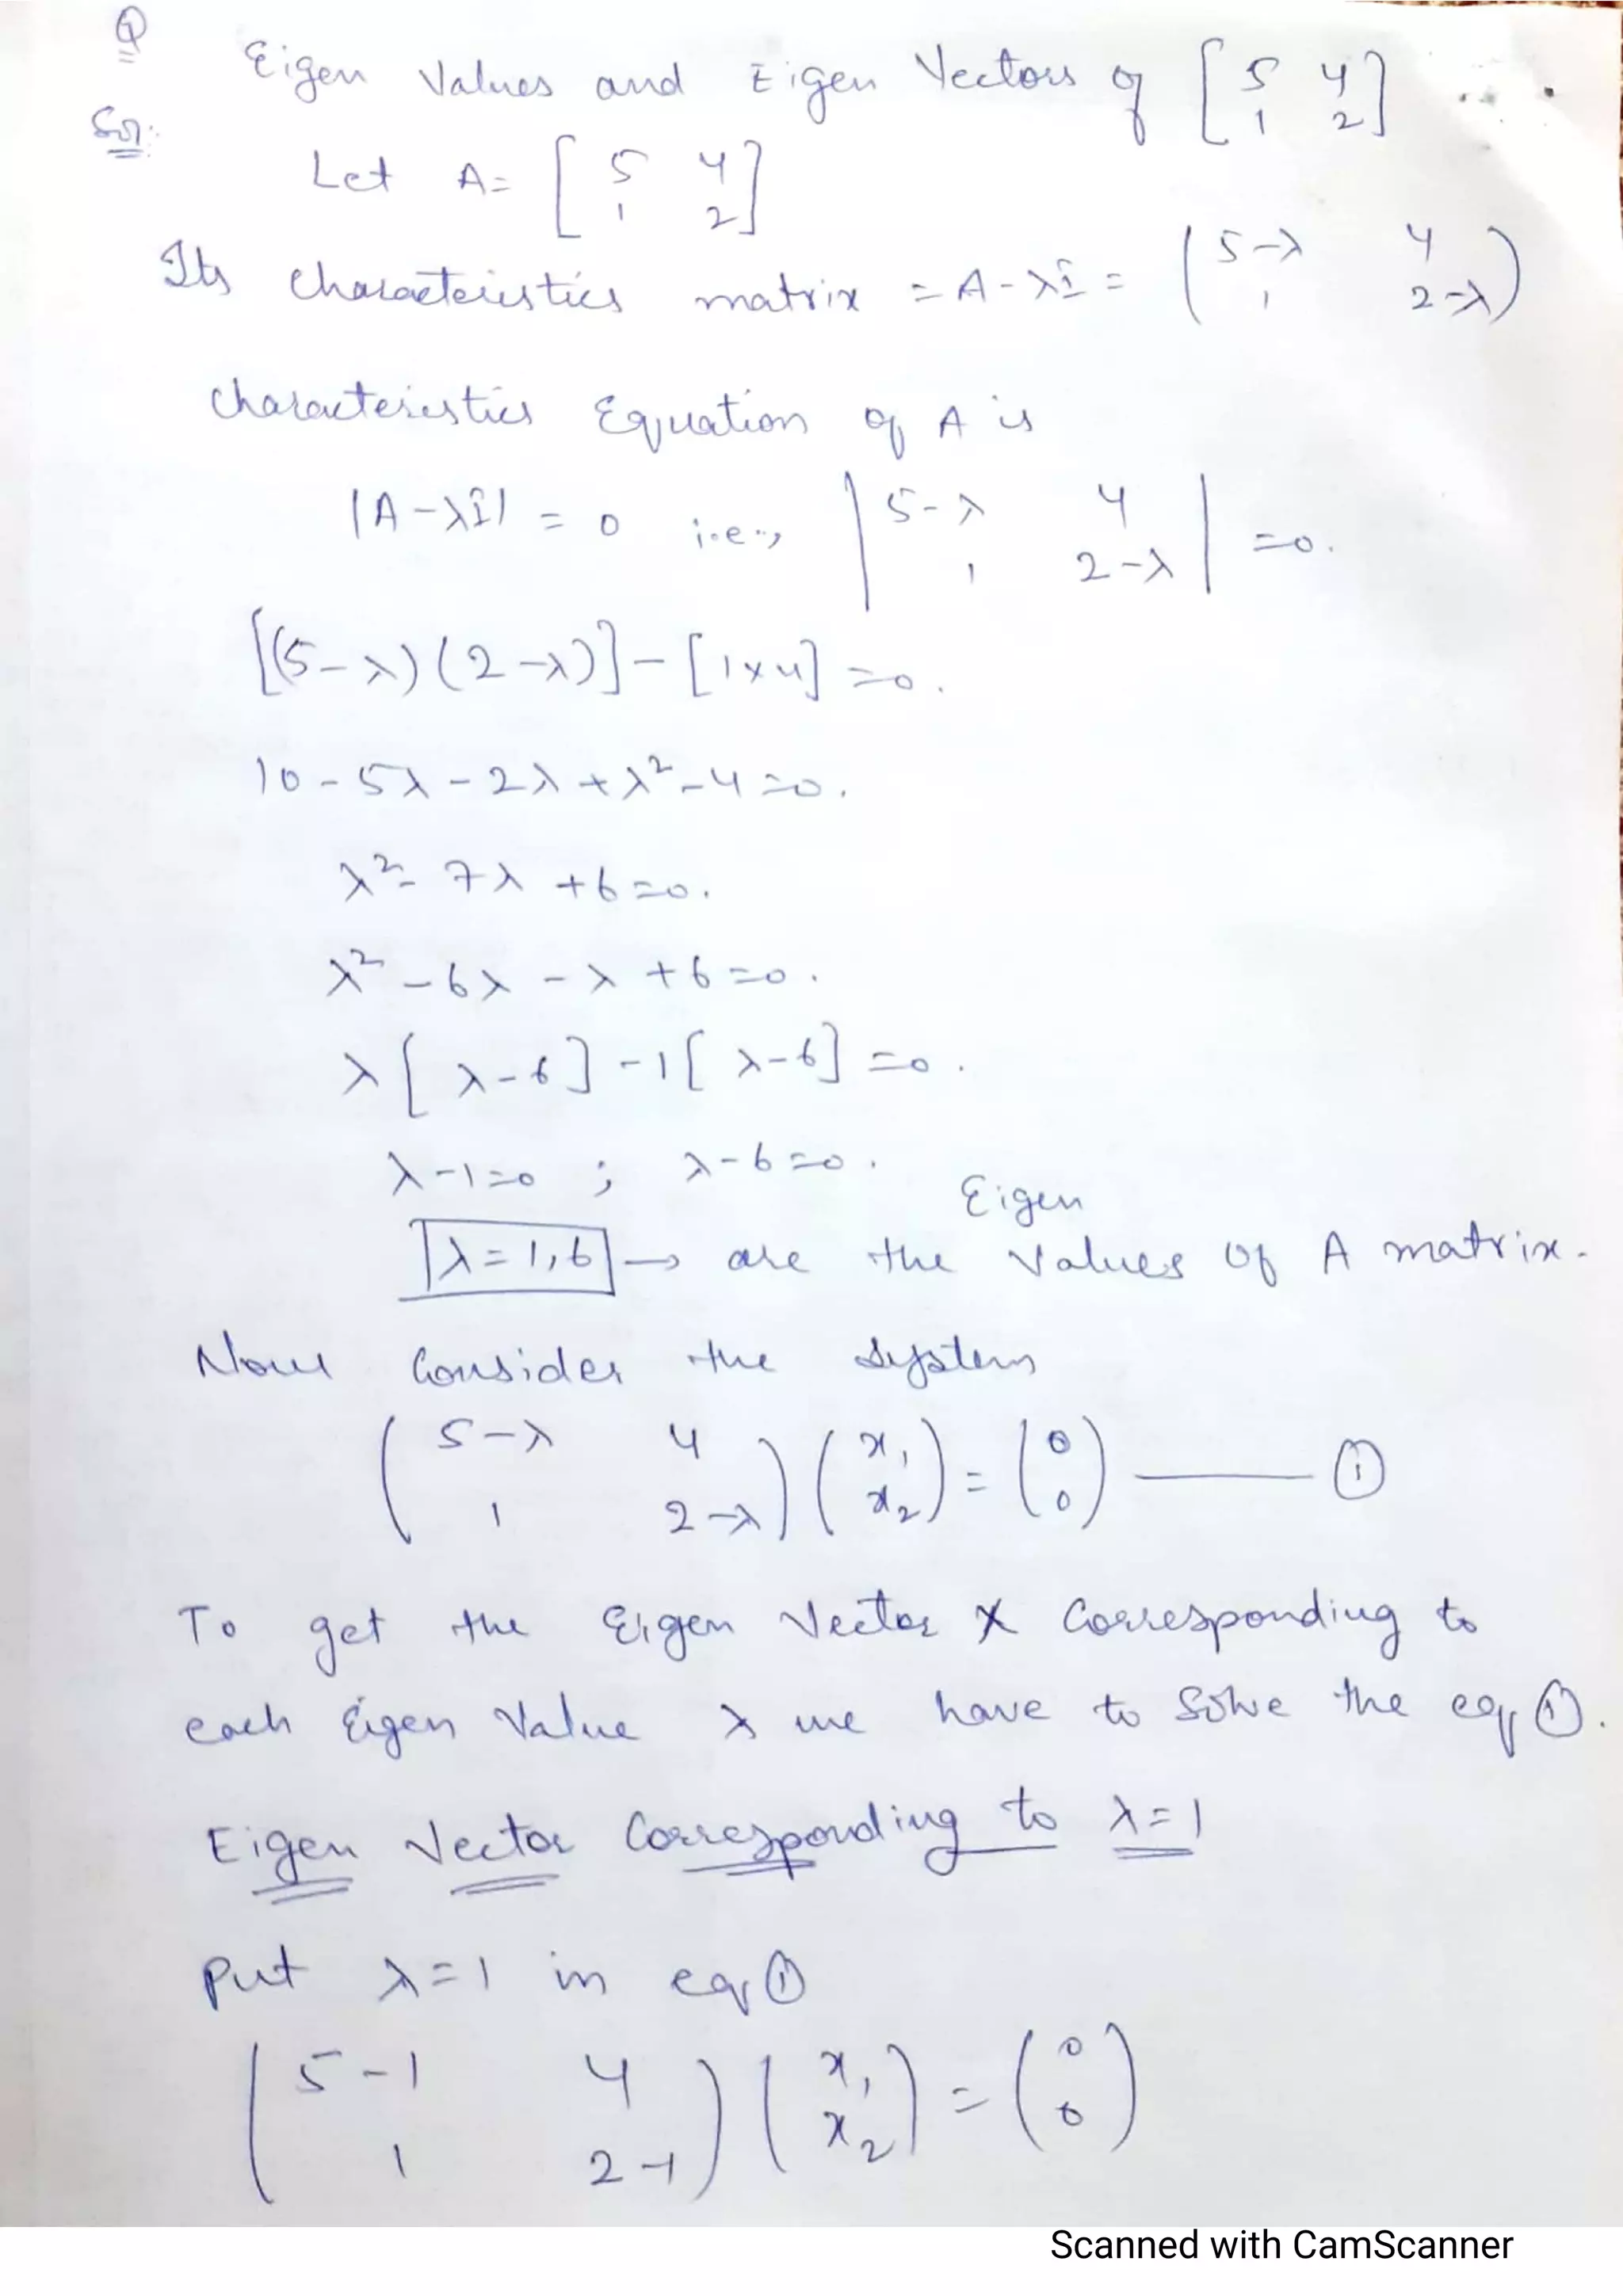 Q
Eigen Values and Eigen Vectors of [5 4
1 2]
Sol:
Let A = [5 4
1 2]
Its characteristics matrix = A - λI = (5-λ 4
1 2-λ)
characteristics Equation of A is
|A - λI| = 0 i.e., |5-λ 4
1 2-λ| = 0.
[(5-λ)(2-λ)] - [1×4] = 0.
10 - 5λ - 2λ + λ² - 4 = 0.
λ² - 7λ + 6 = 0.
λ² - 6λ - λ + 6 = 0.
λ[λ-6] - 1[λ-6] = 0.
λ-1=0 ; λ-6=0.
Eigen
λ = 1,6 → are the Values of A matrix.
Now Consider the System
(5-λ 4
1 2-λ) (x₁
x₂) = (0
0) —— ①
To get the Eigen Vector X Corresponding to
each Eigen Value λ we have to Solve the eq ①.
Eigen Vector Corresponding to λ=1
Put λ=1 in eq ①
(5-1 4
1 2-1) (x₁
x₂) = (0
0)
Scanned with CamScanner